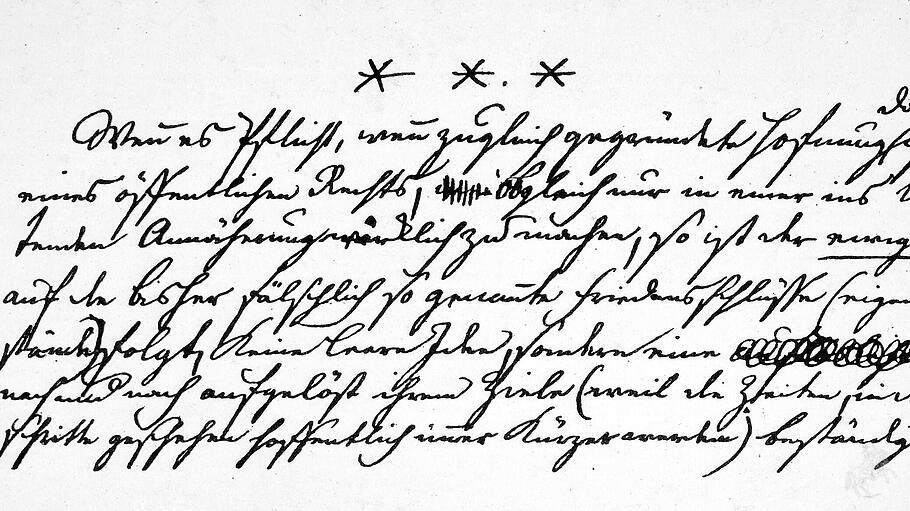 * * *
Wen̅ es Pflicht, wen̅ zugleich gegründete Hofnung
eines öffentlichen Rechts, obgleich nur in einer ins
tenden Annäherung wirklich zu machen, so ist der ewig
auf die bisher fälschlich so genan̅te Friedensschlüsse (eigen
stände) folgt, keine leere Idee, sondern eine
nach und nach aufgelöst ihrem Ziele (weil die Zeiten, in
schritte geschehen hoffentlich im̅er kürzer werden) beständig